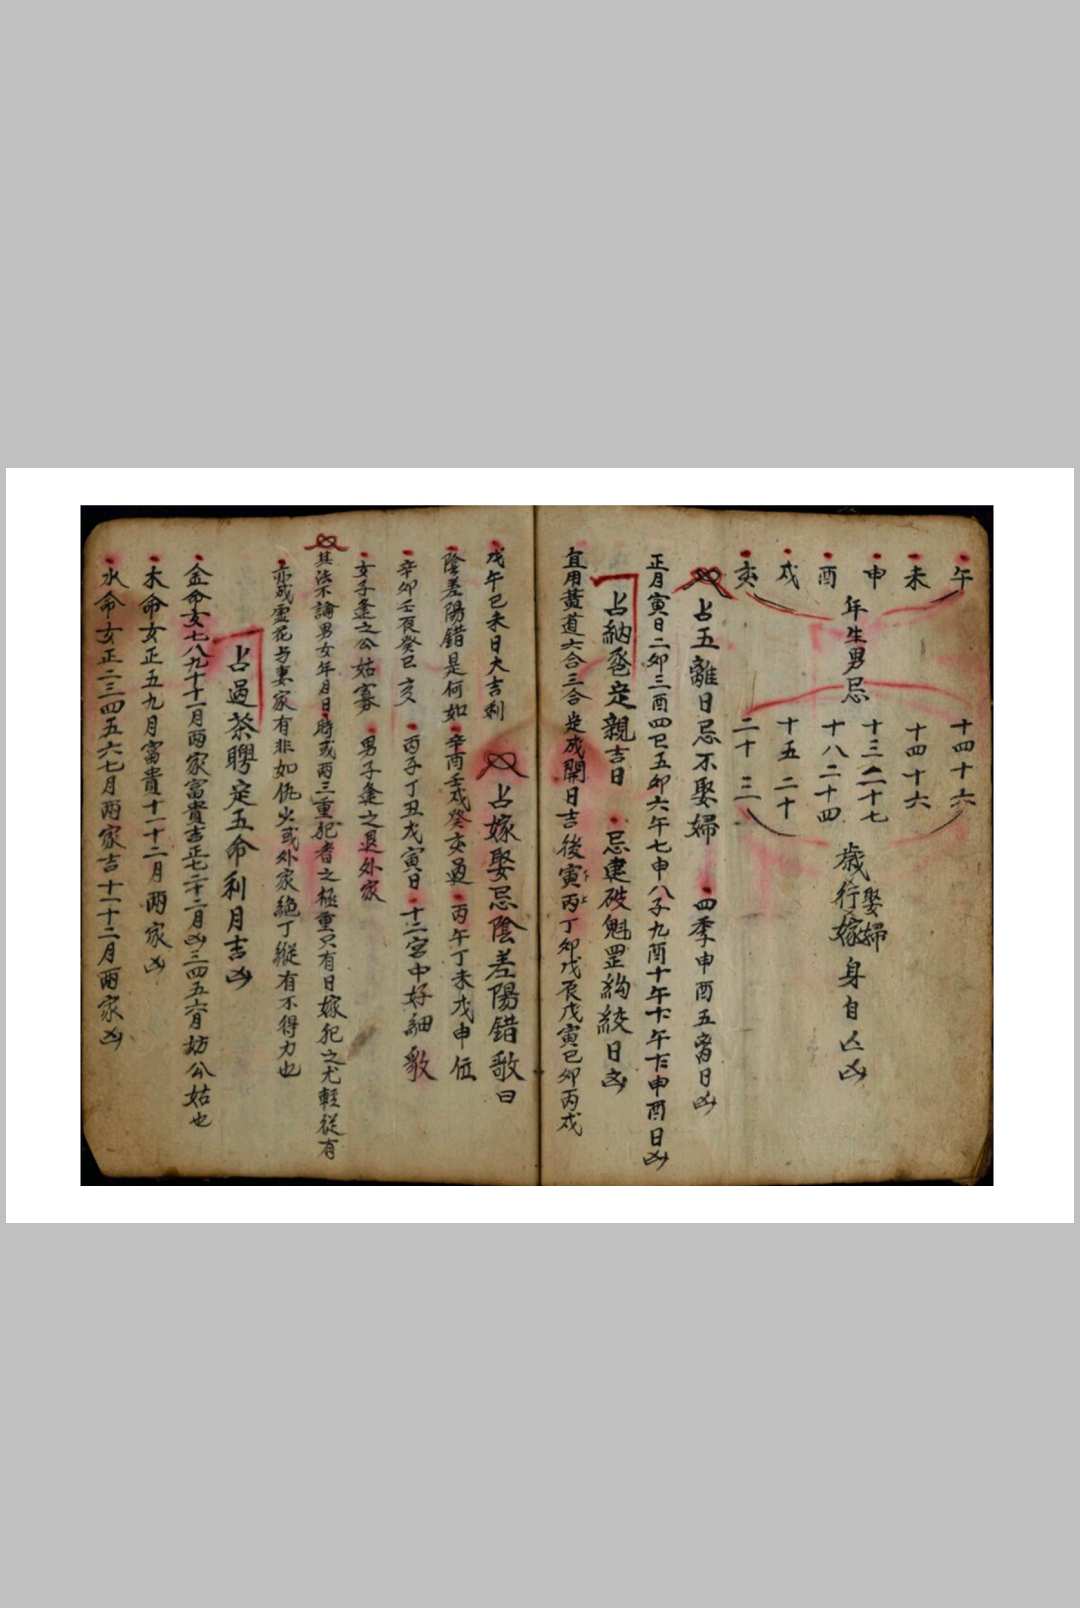 午 未 申 酉 戌 亥
年生男忌
十四 十六
十四 十六
十三 二十七
十八 二十四
十五 二十
二十 三
歲行嫁娶婦身自亡凶
占五離日忌不娶婦 四季申酉五离日凶
正月寅日二卯三酉四巳五卯六午七申八子九酉十午十一午十二申酉日凶
占納 定親吉日 忌建破魁罡絞日凶
宜用黃道六合三合定成開日吉後寅丙丁卯戊辰戊寅己卯丙戌
戊午己未日大吉利 占嫁娶忌陰差陽錯歌曰
陰差陽錯是何如 辛酉壬戌癸亥過 丙午丁未戊申位
辛卯壬辰癸巳亥 丙子丁丑戊寅日 十二宮中好細歌
女子逢之公姑寡 男子逢之退外家
其法不論男女年月日時或兩三重犯者之極重只有日嫁犯之尤輕従有
亦或虛花与妻家有非如仇火或外家絶丁縱有不得力也
占過茶聘定五命利月吉凶
金命女七八九十十一月兩家富貴吉正七二十二月凶三四五六月妨公姑也
木命女正五九月富貴十一十二月兩家凶
水命女正二三四五六七月兩家吉十一十二月兩家凶